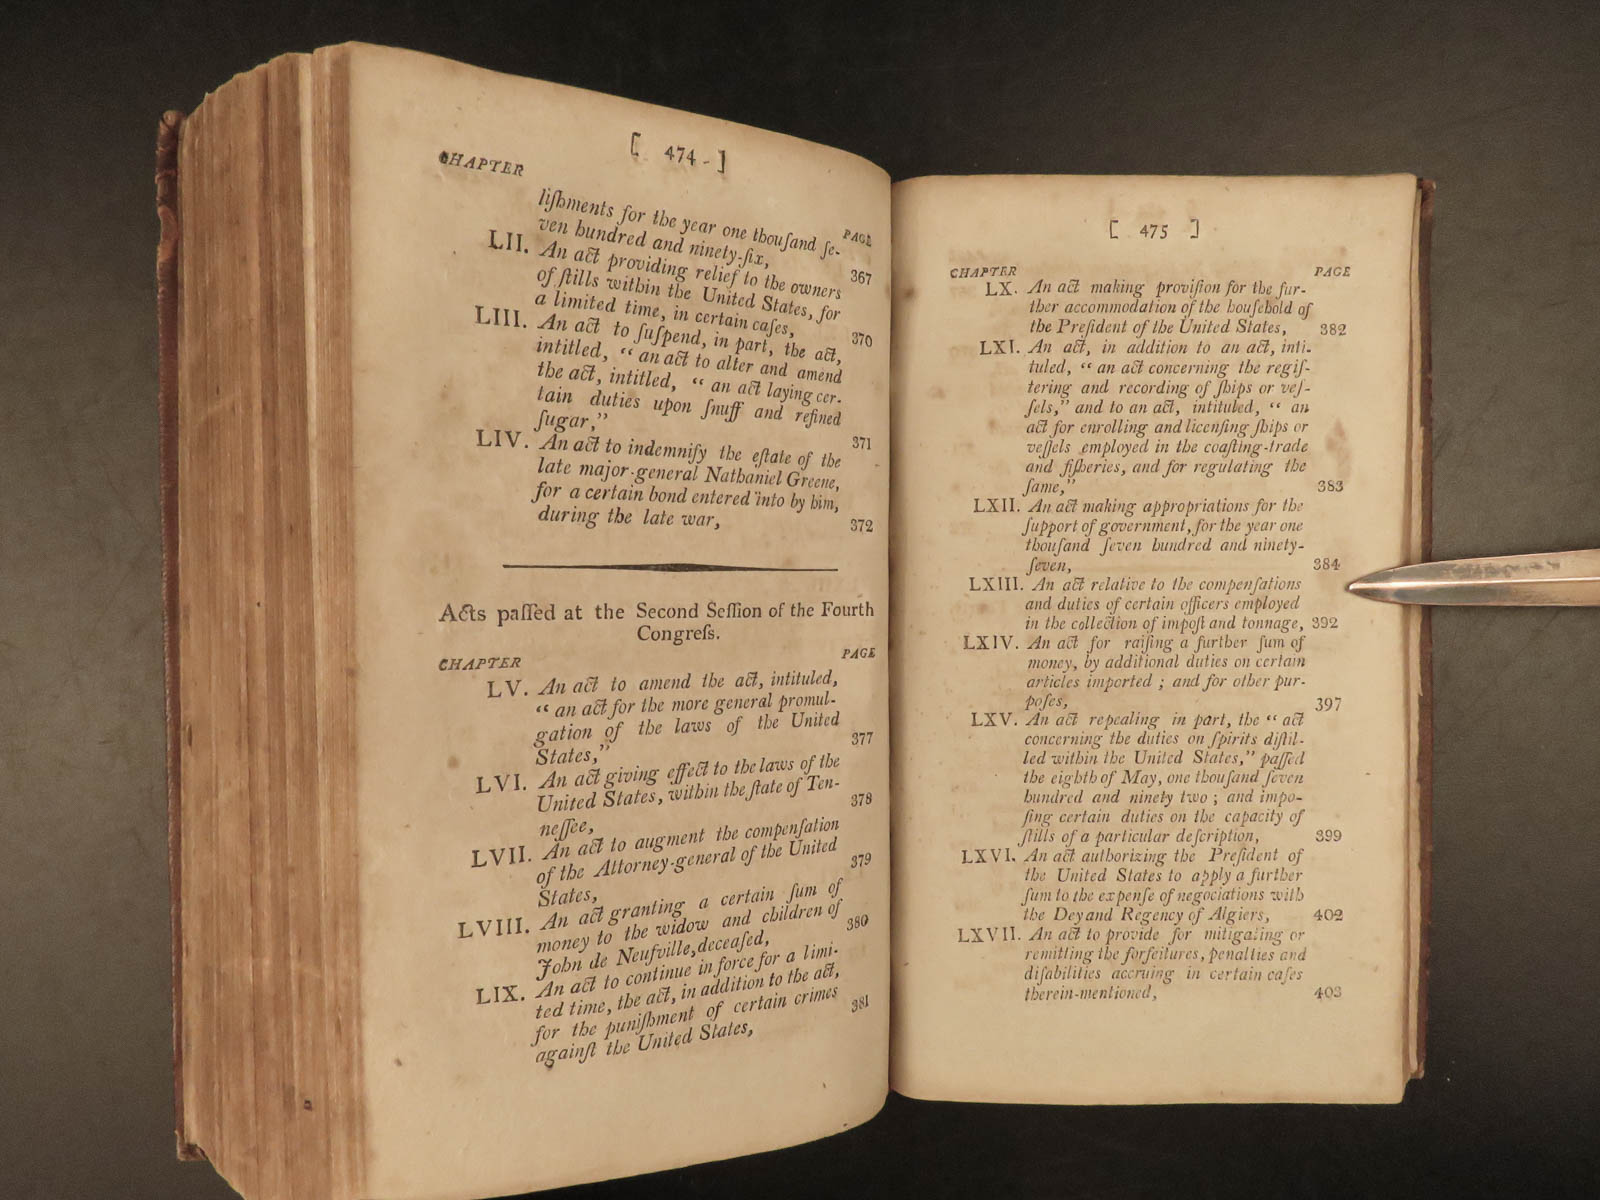 [ 474 ]
CHAPTER
PAGE
liſhments for the year one thouſand ſe-
ven hundred and ninety-ſix, 367
LII. An act providing relief to the owners
of ſtills within the United States, for
a limited time, in certain caſes, 370
LIII. An act to ſuſpend, in part, the act,
intitled, “ an act to alter and amend
the act, intitled, “ an act laying cer-
tain duties upon ſnuff and refined
ſugar,” 371
LIV. An act to indemnify the eſtate of the
late major-general Nathaniel Greene,
for a certain bond entered into by him,
during the late war, 372
Acts paſſed at the Second Seſſion of the Fourth
Congreſs.
CHAPTER PAGE
LV. An act to amend the act, intituled,
“ an act for the more general promul-
gation of the laws of the United
States,” 377
LVI. An act giving effect to the laws of the
United States, within the ſtate of Ten-
neſſee, 378
LVII. An act to augment the compenſation
of the Attorney-general of the United
States, 379
LVIII. An act granting a certain ſum of
money to the widow and children of
John de Neufville, deceaſed, 380
LIX. An act to continue in force for a limi-
ted time, the act, in addition to the act,
for the puniſhment of certain crimes
againſt the United States, 381
[ 475 ]
CHAPTER PAGE
LX. An act making proviſion for the fur-
ther accommodation of the houſehold of
the Preſident of the United States, 382
LXI. An act, in addition to an act, inti-
tuled, “ an act concerning the regiſ-
tering and recording of ſhips or veſ-
ſels,” and to an act, intituled, “ an
act for enrolling and licenſing ſhips or
veſſels employed in the coaſting-trade
and fiſheries, and for regulating the
ſame,” 383
LXII. An act making appropriations for the
ſupport of government, for the year one
thouſand ſeven hundred and ninety-
ſeven, 384
LXIII. An act relative to the compenſations
and duties of certain officers employed
in the collection of impoſt and tonnage, 392
LXIV. An act for raiſing a further ſum of
money, by additional duties on certain
articles imported ; and for other pur-
poſes, 397
LXV. An act repealing in part, the “ act
concerning the duties on ſpirits diſtil-
led within the United States,” paſſed
the eighth of May, one thouſand ſeven
hundred and ninety two ; and impo-
ſing certain duties on the capacity of
ſtills of a particular deſcription, 399
LXVI. An act authorizing the Preſident of
the United States to apply a further
ſum to the expenſe of negociations with
the Dey and Regency of Algiers, 402
LXVII. An act to provide for mitigating or
remitting the forfeitures, penalties and
diſabilities accruing in certain caſes
therein-mentioned, 403